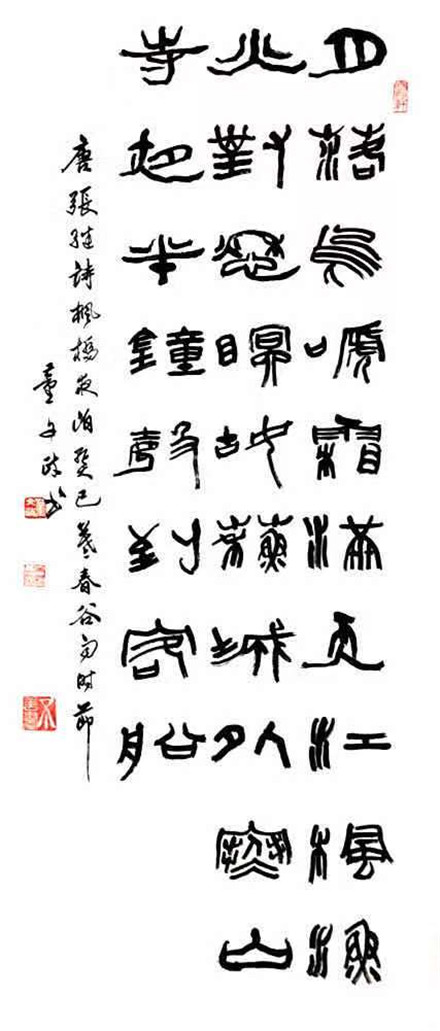 月落烏嗁霜滿天江楓漁
火對愁瞑姑蘇城外寒山
寺夜半鐘聲到客船
唐張继詩楓橋夜泊癸巳暮春谷雨時節
董文政书